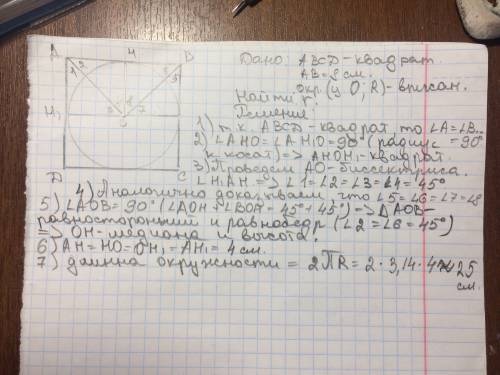 A
H
B
1
2
6
5
H₁
3
4
8
7
O
D
C
Дано: ABCD-квадрат.
AB=8 см.
окр. (у O; R)-вписан.
Найти r.
Решение:
1) т.к. ABCD-квадрат, то ∠A=∠B..
=90°
2) ∠AHO=∠AH₁O=90° (радиус
к касат) => AHOH₁-квадрат.
3) Проведем AO-биссектриса.
∠H₁AH. => ∠1=∠2=∠3=∠4=45°
4) Аналогично доказываем, что ∠5=∠6=∠7=∠8
5) ∠AOB=90° (∠AOH+∠BOH=45°+45°) => △AOB-
равносторонний и равнобедр (∠2=∠6=45°)
=> OH-медиана и высота.
6) AH=HO=OH₁=AH₁=4 см.
7) длинна окружности = 2πR=2·3,14·4≈25
см.